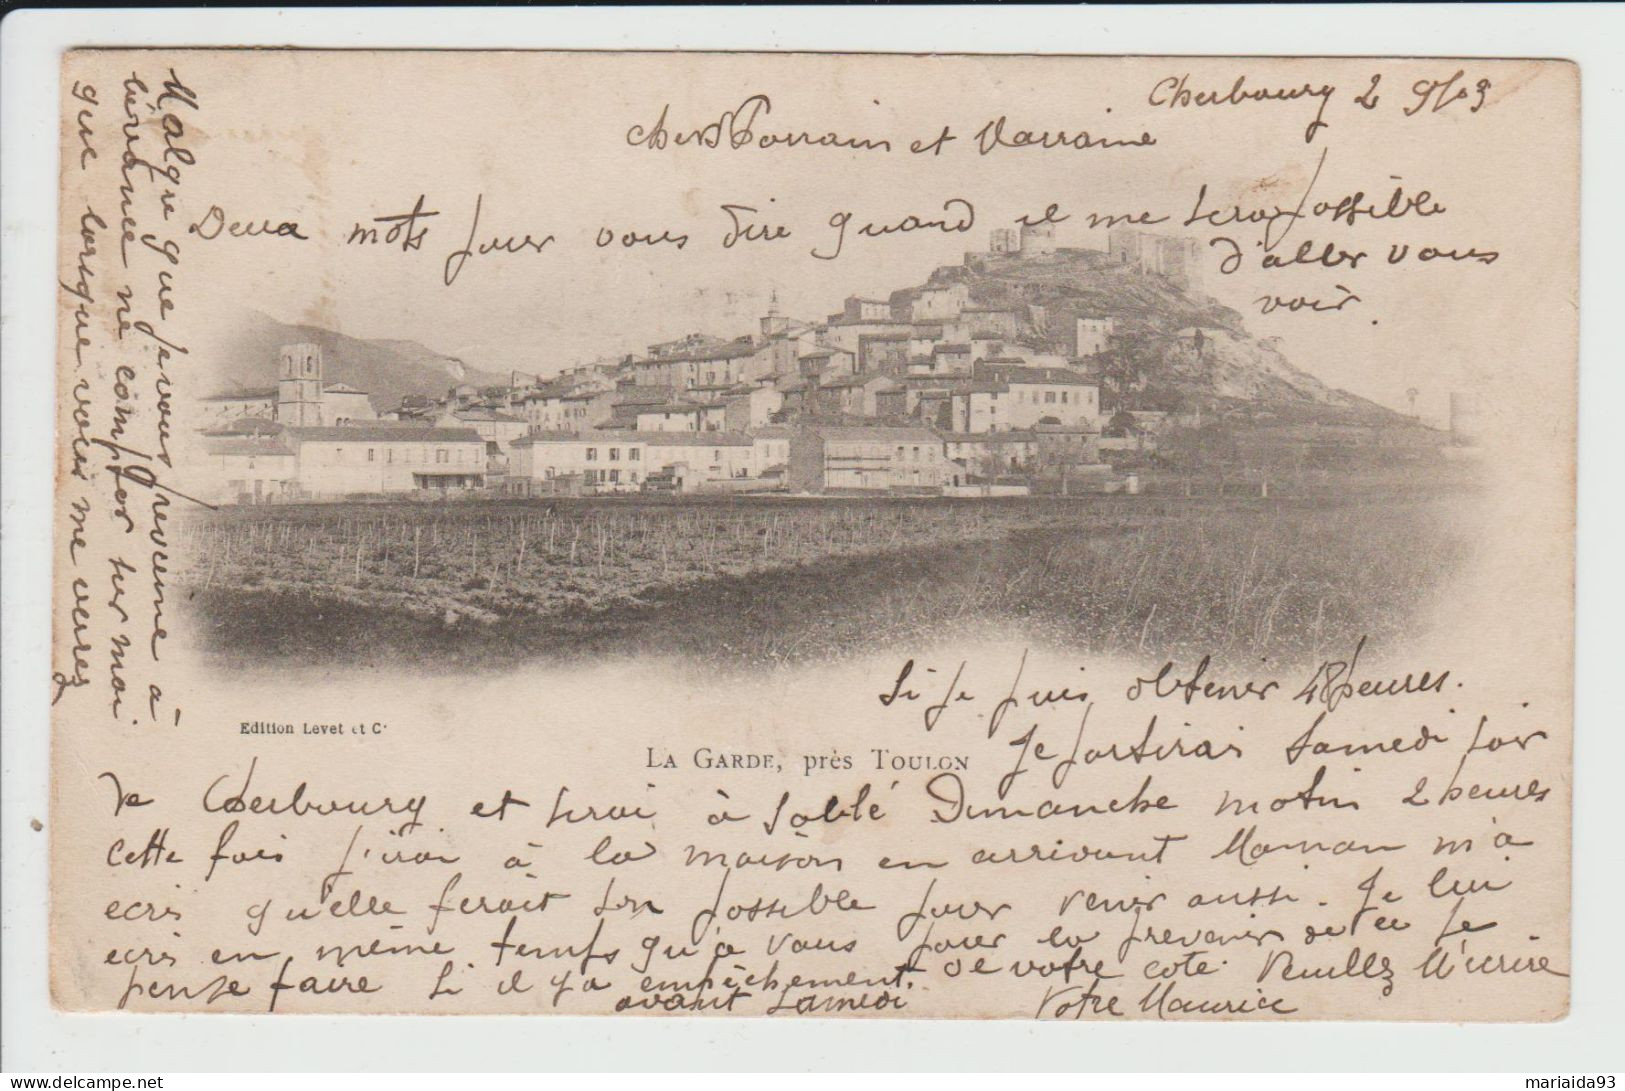 Cherbourg 2 9/03
Chers Parrain et Marraine
Deux mots pour vous dire quand il me sera possible
d'aller vous
voir.
Si je puis obtenir 48 heures.
Je sortirai Samedi soir
de Cherbourg et serai à Sablé Dimanche matin 2 heures
cette fois j'irai à la maison en arrivant Maman m'a
ecris qu'elle ferait son possible pour venir aussi. Je lui
ecris en même temps qu'a vous pour la prevenir de ce je
pense faire si il y a empêchement. de votre cote. Veuillez M'ecrire
avant Samedi Votre Maurice
Malgre que je vous previenne à
l'avance ne compter sur moi
que lorsque vous me verez
Edition Levet et Cie
LA GARDE, près TOULON
mariaida93